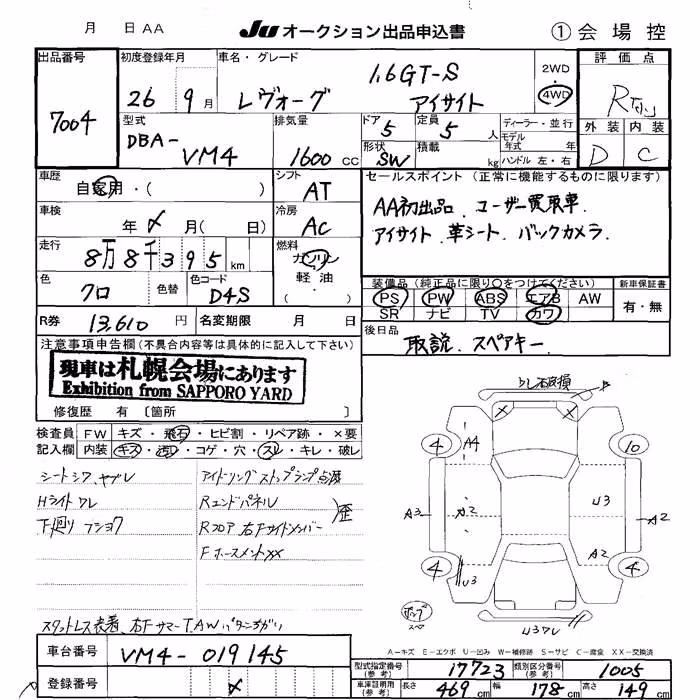 月 日 AA JU オークション出品申込書 ① 会場控
出品番号 初度登録年月 車名・グレード 2WD 評価点
7004 26年 9月 レヴォーグ 1.6GT-S アイサイト 4WD R
型式 排気量 ドア 定員 ディーラー・並行 外装 内装
DBA-VM4 1600cc 5 5人 モデル年式 年 D C
形状 積載 ハンドル 左・右
SW kg
車歴 シフト セールスポイント (正常に機能するものに限ります)
自家用・( ) AT AA初出品. ユーザー買取車.
車検 冷房 アイサイト. 革シート. バックカメラ.
年 メ 月( 日) AC
走行 燃料
8万8千395km ガソリン・軽油・
色 色替 色コード 装備品 (純正品に限り○をつけてください) 新車保証書
クロ D4S PS PW ABS エアB AW 有・無
SR ナビ TV カワ
R券 13,610円 名変期限 月 日 後日品
取説. スペアキー.
注意事項申告欄(不具合内容等は具体的に記入して下さい)
現車は札幌会場にあります
Exhibition from SAPPORO YARD
修復歴 有 〔箇所 〕
検査員 FW キズ・飛石・ヒビ割・リペア跡・×要
記入欄 内装 キズ・汚レ・コゲ・穴・スレ・キレ・破レ
シートシワ.ヤブレ アイドリングストップランプ点滅
Hライトワレ Rエンドパネル
下廻りフショク Rフロア 右Fサイドメンバー 歪
Fホースメント××
スタットレス装着.右FサマーT.AWパターンちがい
破損
4 A4 10
A3 A2 U3 A2
4 U3 A2 4
U3ワレ
A-キズ E-エクボ U-凹み W-補修跡 S-サビ C-腐食 XX-交換済
車台番号 VM4-019145
登録番号 メ
型式指定番号(参考) 17723 類別区分番号(参考) 1005
車庫証明用(参考) 長さ 469cm 幅 178cm 高さ 149cm